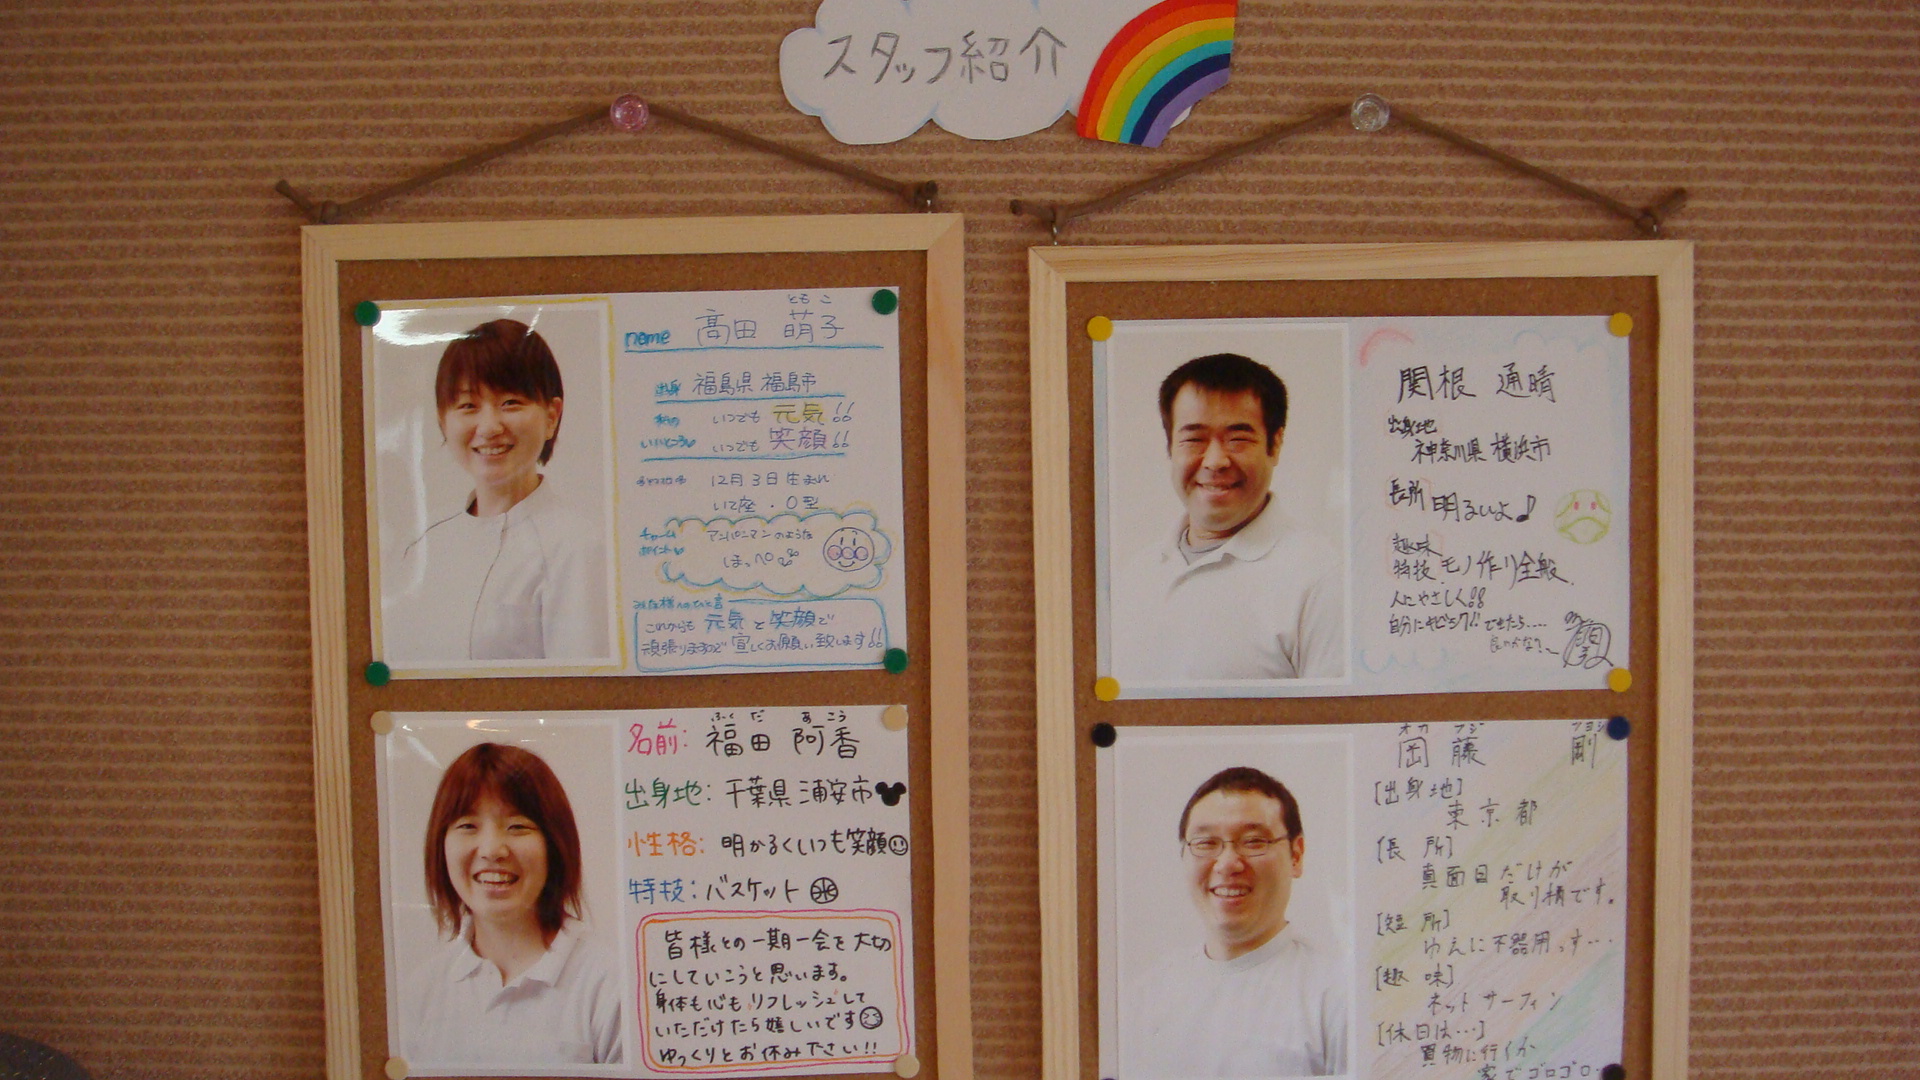 スタッフ紹介
ともこ
name 高田 萌子
出身 福島県 福島市
私の いつでも 元気!!
いいところ いつでも 笑顔!!
12月3日生まれ
いて座・O型
チャーム アンパンマンのような
ポイント ほっぺ
みなさまへのひと言
これからも 元気と笑顔で
頑張りますので 宜しくお願い致します!!
ふくだ あこう
名前: 福田 阿香
出身地: 千葉県浦安市
性格: 明かるくいつも笑顔
特技: バスケット
皆様との一期一会を大切
にしていこうと思います。
身体も心もリフレッシュして
いただけたら嬉しいです
ゆっくりとお休み下さい!!
関根 通晴
出身地
神奈川県 横浜市
長所 明るいよ♪
趣味
特技 モノ作り全般
人にやさしく!!
自分にキビシク!! できたら....
良いかな?~
オカ フジ ツヨシ
岡 藤 剛
[出身地]
東京都
[長所]
真面目だけが
取り柄です。
[短所]
ゆえに不器用っす…
[趣味]
ネットサーフィン
[休日は…]
買物に行くか
家でゴロゴロ.